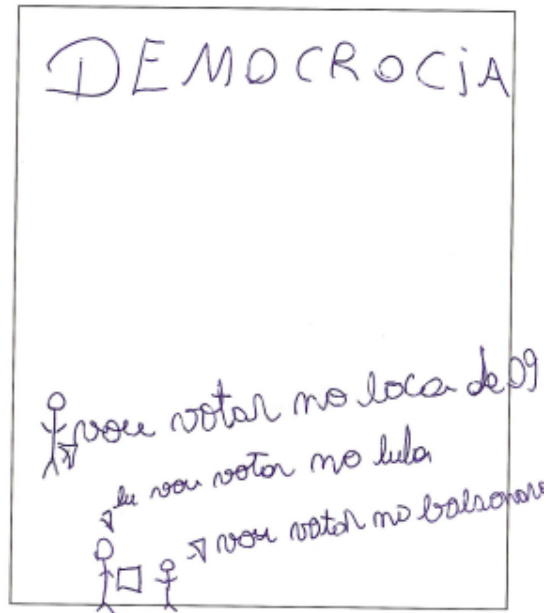 DEMOCROCiA
vou votar no loca de 09
eu vou votar no lula
vou votar no bolsonaro